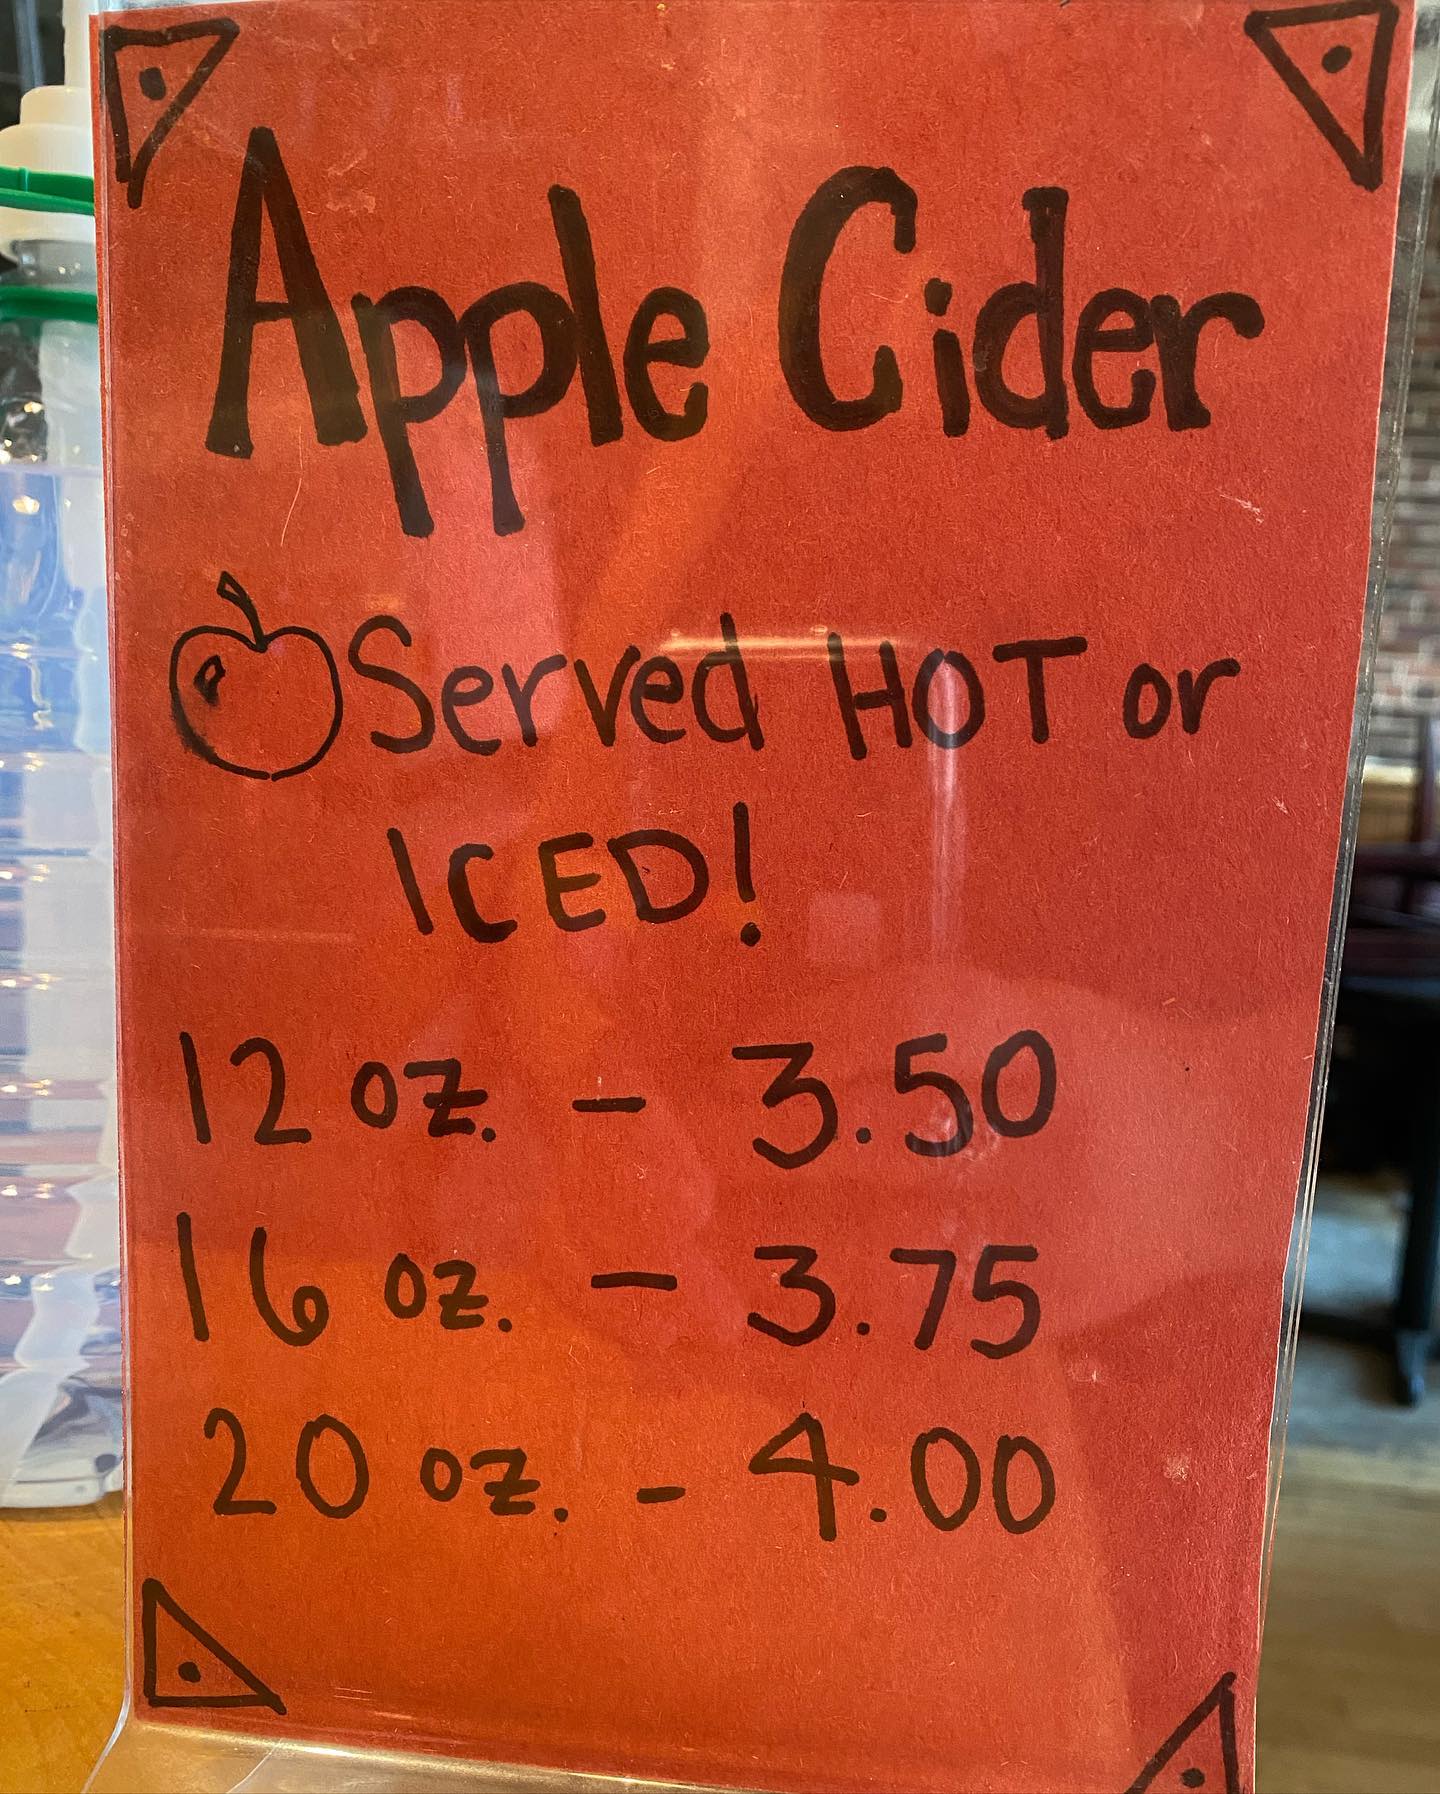 Apple Cider
Served HOT or
ICED!
12 oz. - 3.50
16 oz. - 3.75
20 oz. - 4.00